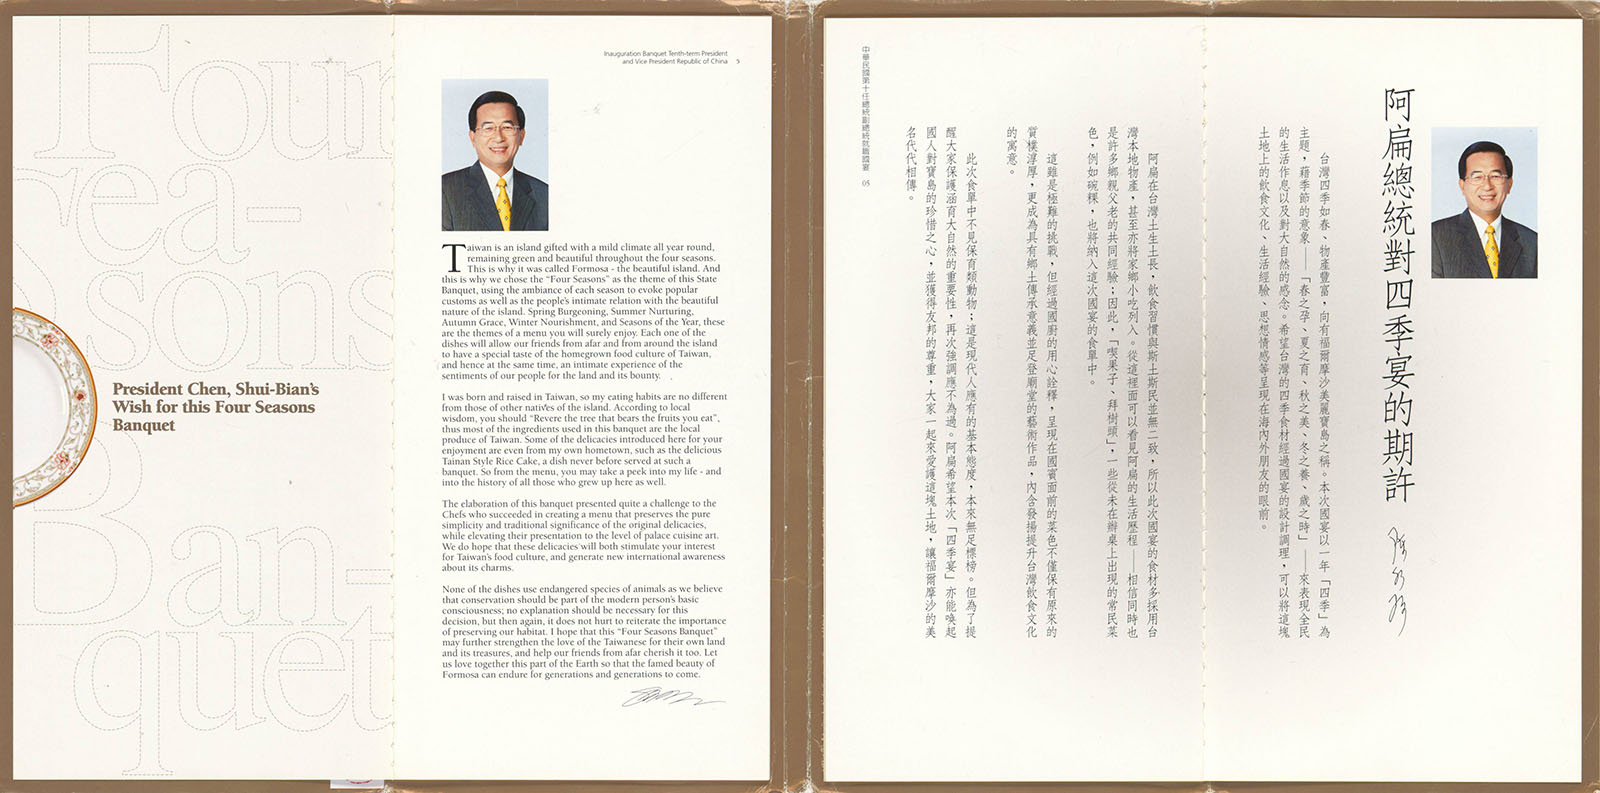 Four
Sea-
sons
Ban-
quet
President Chen, Shui-Bian's
Wish for this Four Seasons
Banquet
Inauguration Banquet Tenth-term President
and Vice President Republic of China 5
Taiwan is an island gifted with a mild climate all year round,
remaining green and beautiful throughout the four seasons.
This is why it was called Formosa - the beautiful island. And
this is why we chose the "Four Seasons" as the theme of this State
Banquet, using the ambiance of each season to evoke popular
customs as well as the people's intimate relation with the beautiful
nature of the island. Spring Burgeoning, Summer Nurturing,
Autumn Grace, Winter Nourishment, and Seasons of the Year, these
are the themes of a menu you will surely enjoy. Each one of the
dishes will allow our friends from afar and from around the island
to have a special taste of the homegrown food culture of Taiwan,
and hence at the same time, an intimate experience of the
sentiments of our people for the land and its bounty.
I was born and raised in Taiwan, so my eating habits are no different
from those of other natives of the island. According to local
wisdom, you should "Revere the tree that bears the fruits you eat",
thus most of the ingredients used in this banquet are the local
produce of Taiwan. Some of the delicacies introduced here for your
enjoyment are even from my own hometown, such as the delicious
Tainan Style Rice Cake, a dish never before served at such a
banquet. So from the menu, you may take a peek into my life - and
into the history of all those who grew up here as well.
The elaboration of this banquet presented quite a challenge to the
Chefs who succeeded in creating a menu that preserves the pure
simplicity and traditional significance of the original delicacies,
while elevating their presentation to the level of palace cuisine art.
We do hope that these delicacies will both stimulate your interest
for Taiwan's food culture, and generate new international awareness
about its charms.
None of the dishes use endangered species of animals as we believe
that conservation should be part of the modern person's basic
consciousness; no explanation should be necessary for this
decision, but then again, it does not hurt to reiterate the importance
of preserving our habitat. I hope that this "Four Seasons Banquet"
may further strengthen the love of the Taiwanese for their own land
and its treasures, and help our friends from afar cherish it too. Let
us love together this part of the Earth so that the famed beauty of
Formosa can endure for generations and generations to come.
阿扁總統對四季宴的期許
陳水扁
台灣四季如春、物產豐富，向有福爾摩沙美麗寶島之稱。本次國宴以一年「四季」為
主題，藉季節的意象——「春之孕、夏之育、秋之美、冬之養、歲之時」——來表現全民
的生活作息以及對大自然的感念。希望台灣的四季食材經過國宴的設計調理，可以將這塊
土地上的飲食文化、生活經驗、思想情感等呈現在海內外朋友的眼前。
阿扁在台灣土生土長，飲食習慣與斯土斯民並無二致，所以此次國宴的食材多採用台
灣本地物產，甚至亦將家鄉小吃列入。從這裡面可以看見阿扁的生活歷程——相信同時也
是許多鄉親父老的共同經驗；因此，「喫果子、拜樹頭」，一些從未在辦桌上出現的常民菜
色，例如碗粿，也將納入這次國宴的食單中。
這雖是極難的挑戰，但經過國廚的用心詮釋，呈現在國賓面前的菜色不僅保有原來的
質樸淳厚，更成為具有鄉土傳承意義並足登廟堂的藝術作品，內含發揚提升台灣飲食文化
的寓意。
此次食單中不見保育類動物；這是現代人應有的基本態度，本來無足標榜。但為了提
醒大家保護涵育大自然的重要性，再次強調應不為過。阿扁希望本次「四季宴」亦能喚起
國人對寶島的珍惜之心，並獲得友邦的尊重，大家一起來愛護這塊土地，讓福爾摩沙的美
名代代相傳。
中華民國第十任總統副總統就職國宴 05